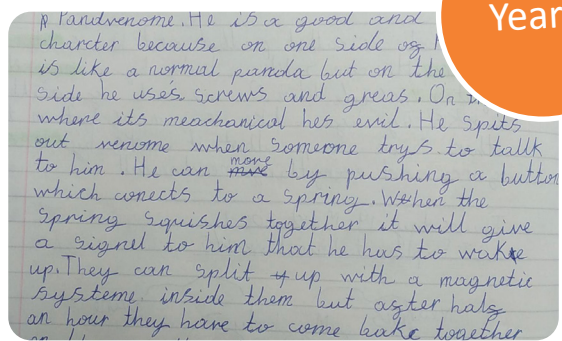 Year
Pandvenome. He is a good and
charcter because on one side of
is like a normal panda but on the
side he uses screws and greas. On
where its meachanical hes evil. He spits
out venome when someone trys to tallk
to him. He can move by pushing a button
which conects to a spring. When the
spring squishes together it will give
a signel to him that he has to wake
up. They can split up with a magnetic
systeme inside them but after half
an hour they have to come bake together